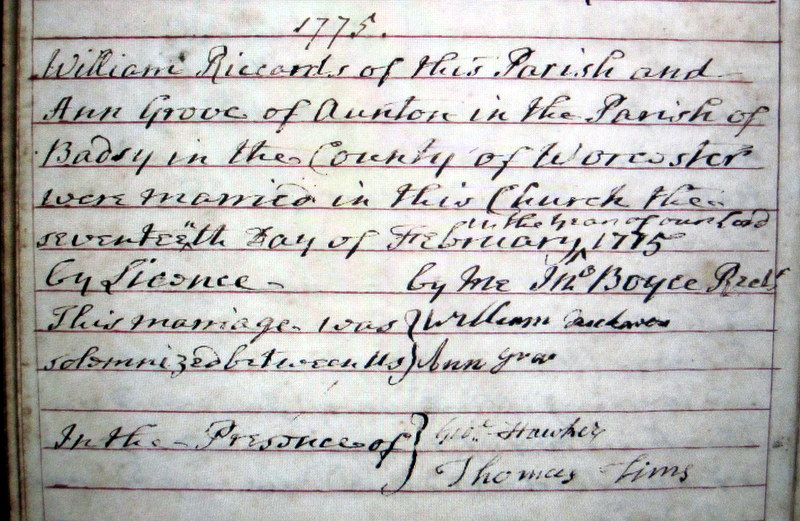 1775.
William Riccards of this Parish and
Ann Grove of Aunton in the Parish of
Badsy in the County of Worcester
were married in this Church the
in the year of our Lord
seventeenth Day of February 1775
by Licence by Me Thos Boyce Rectr
This marriage was } William
solemnized between us } Ann
In the Presence of } Geo. Hawkes
Thomas Tims